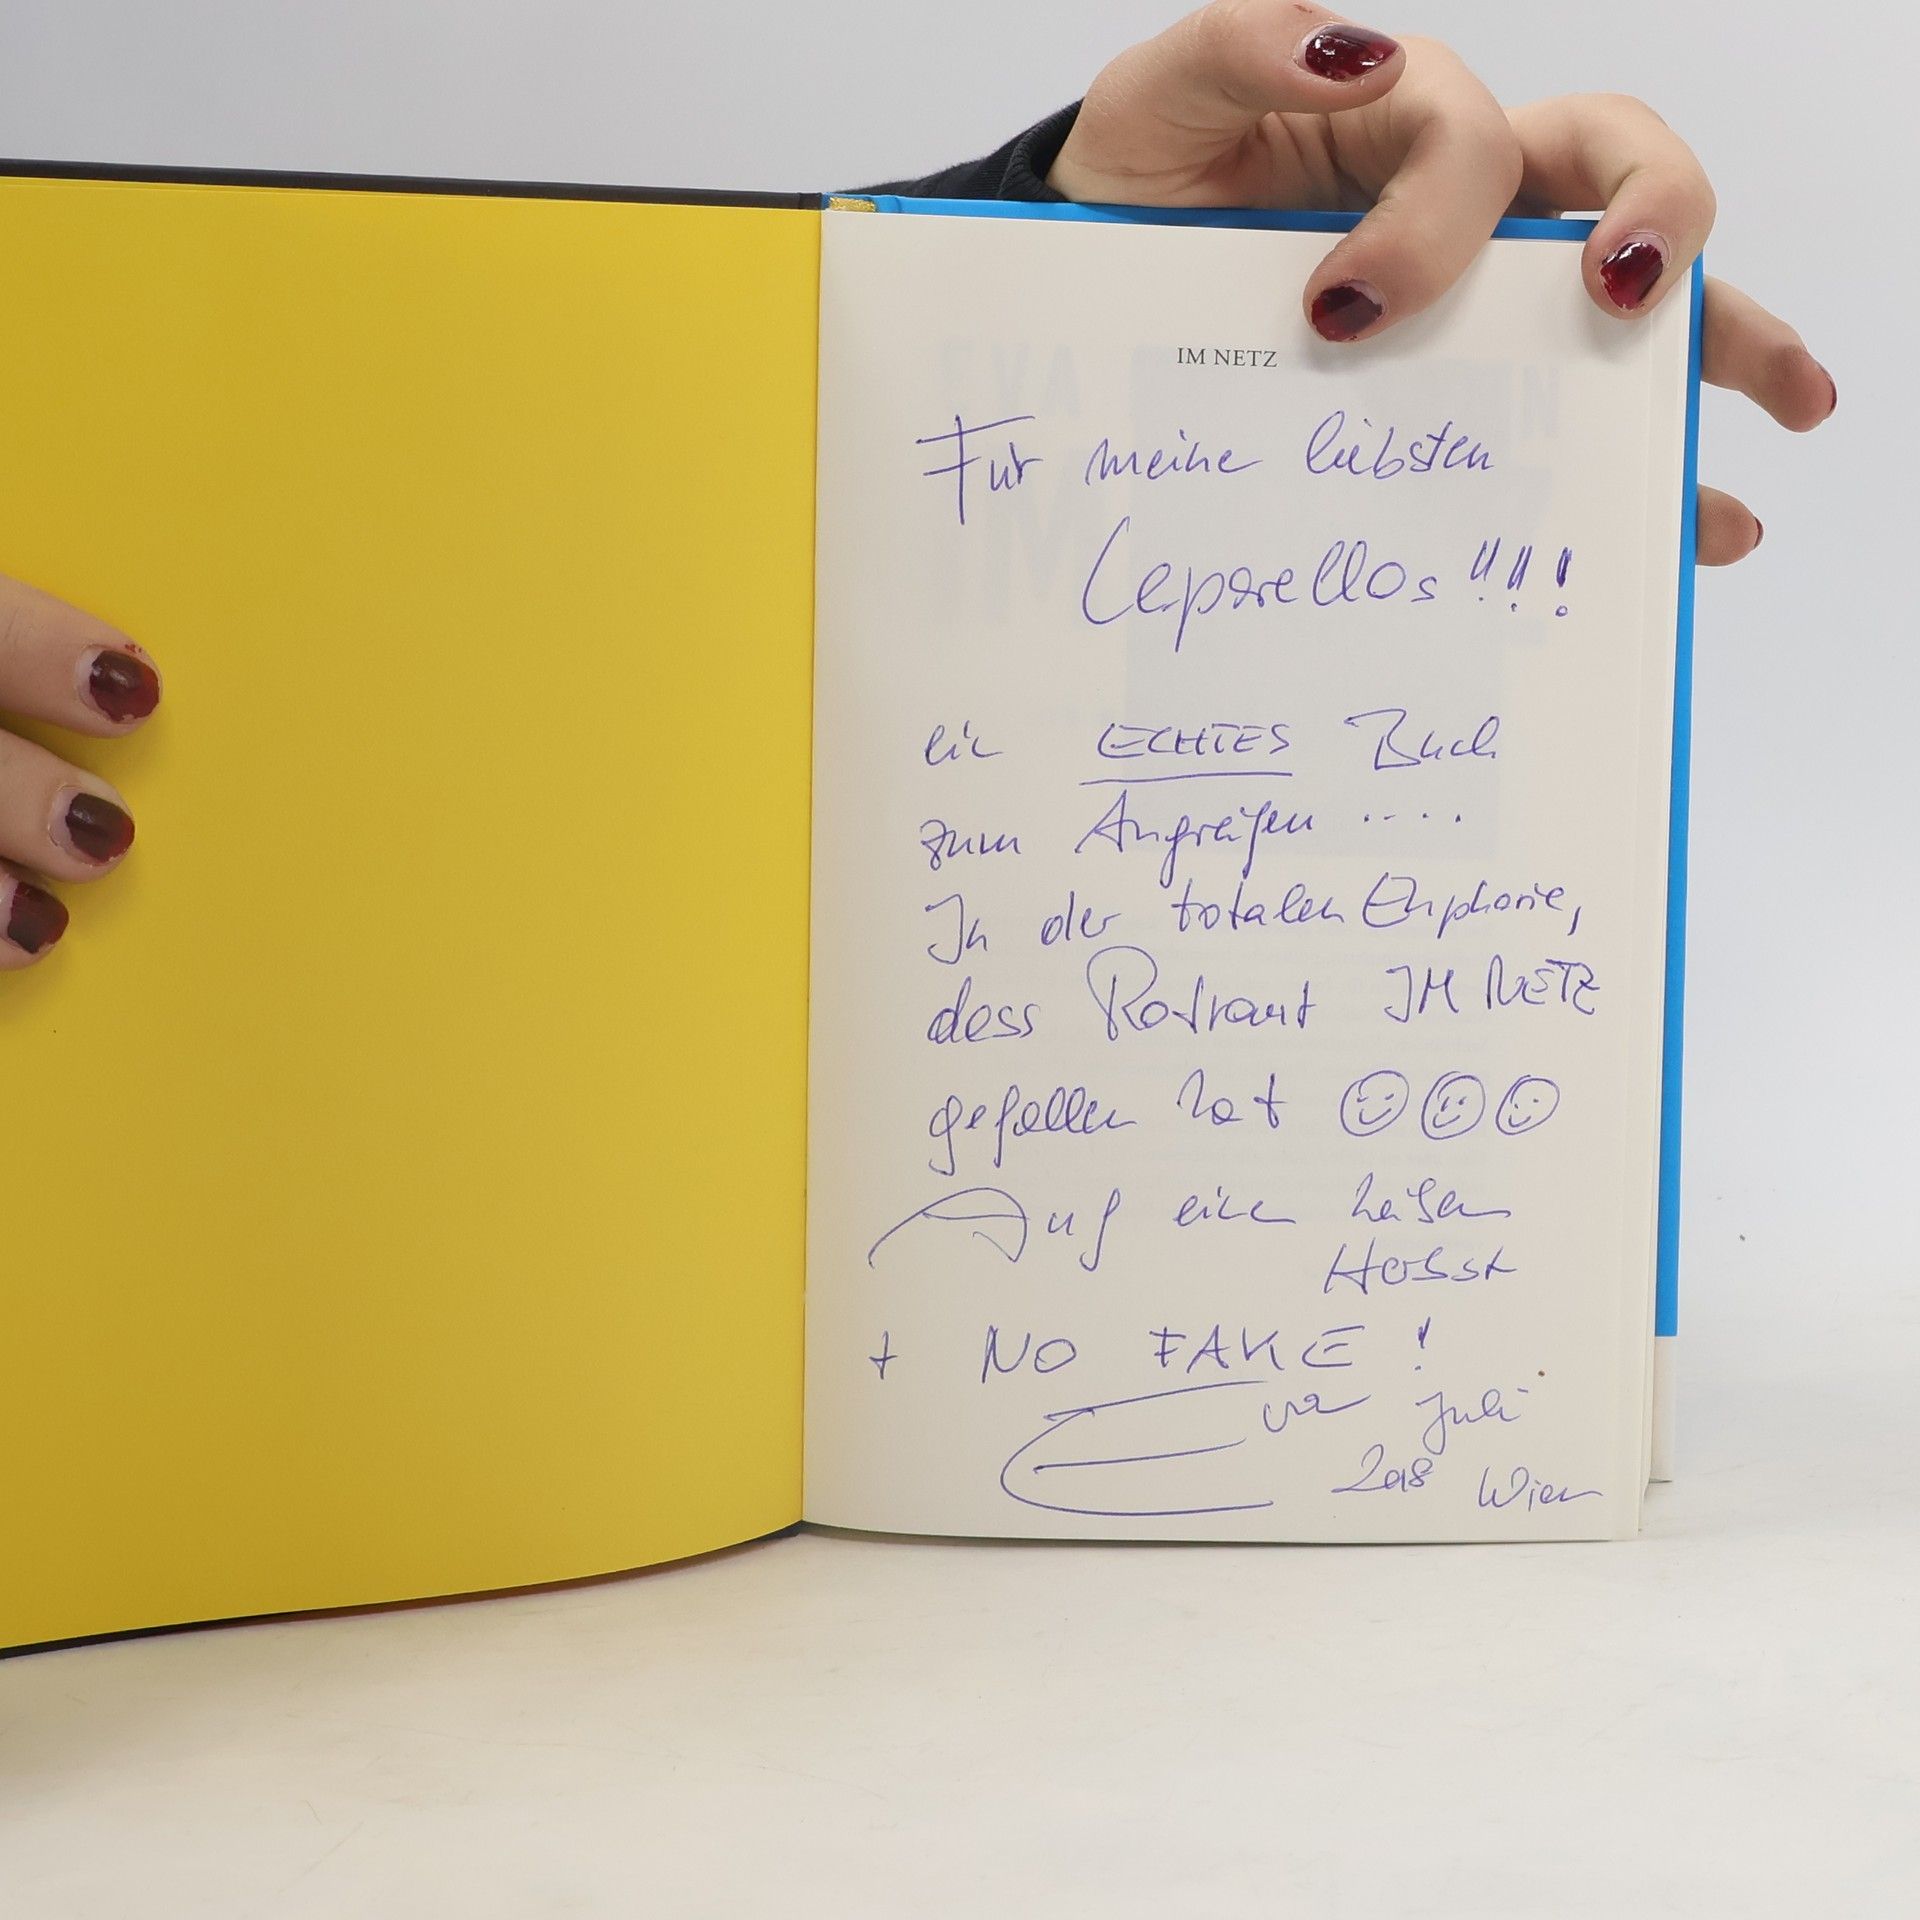 IM NETZ
Für meine liebsten
Leporellos!!!
ein ECHTES Buch
zum Angreifen ....
In der totalen Euphorie,
dass Rotraut IM NETZ
gefallen hat ☺☺☺
Auf einen heißen
Herbst
+ NO FAKE!
Eva Juli
2018 Wien